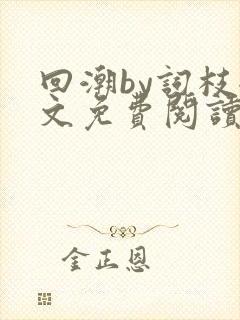 回潮by詞枝
文免費閱讀
金正恩